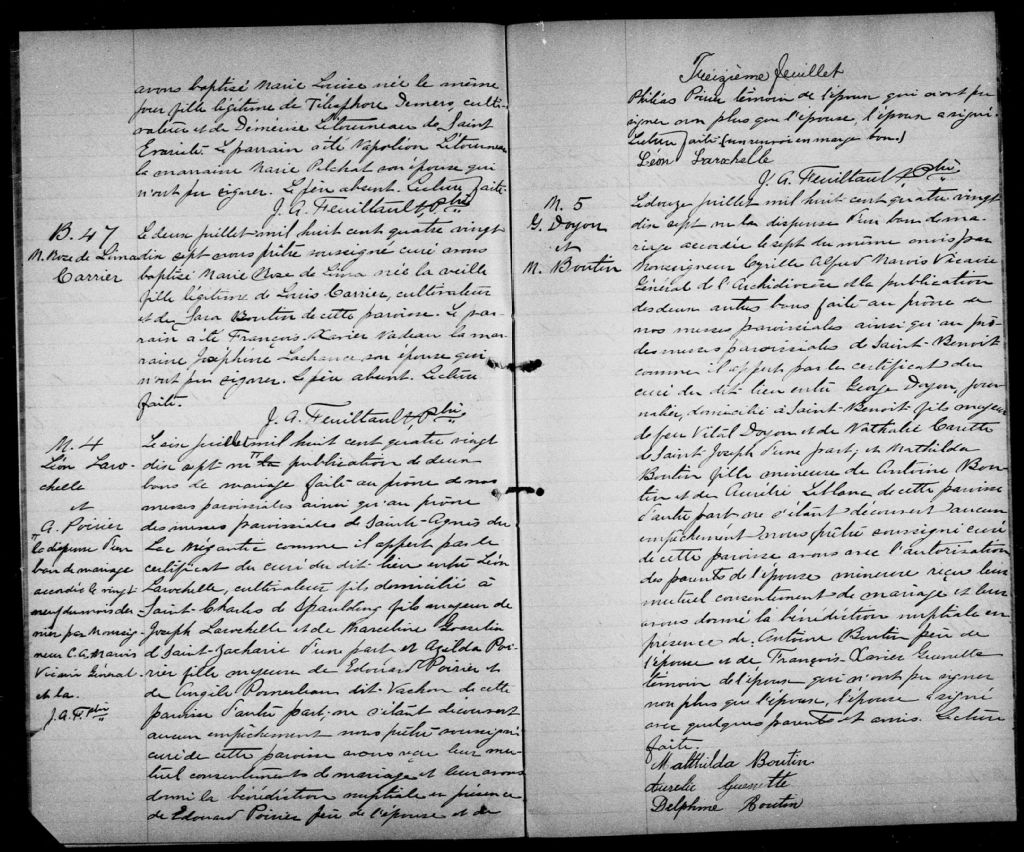 avons baptisé Marie Louise née le même
jour fille légitime de Télesphore Demers, culti-
vateur et de Démérise Létourneau de Saint
Evariste. Le parrain a été Napoléon Létourneau
la marraine Marie Pilchat son épouse qui
n'ont pu signer. Le père absent. Lecture faite.
J. A. Feuiltault Ptre
B. 47
M. Rose de Lima
Carrier
Le deux juillet mil huit cent quatre vingt
dix sept nous prêtre soussigné curé avons
baptisé Marie Rose de Lima née la veille
fille légitime de Louis Carrier, cultivateur
et de Sara Boutin de cette paroisse. Le par-
rain a été François-Xavier Nadeau la mar-
raine Joséphine Lachance son épouse qui
n'ont pu signer. Le père absent. Lecture
faite.
J. A. Feuiltault Ptre
M. 4
Léon Laro-
chelle
et
A. Poirier
Le six juillet mil huit cent quatre vingt
dix sept vu la publication de deux
bans de mariage faite au prône de nos
messes paroissiales ainsi qu'au prône
des messes paroissiales de Sainte-Agnès du
Lac Mégantic comme il appert par le
certificat du curé du dit lieu entre Léon
Larochelle, cultivateur fils domicilié à
Saint-Charles de Spaulding fils majeur de
Joseph Larochelle et de Marceline Gosselin
de Saint-Zacharie d'une part et Azelda Poi-
rier fille majeure de Edouard Poirier et
de Angèle Pomerleau dit Vachon de cette
paroisse d'autre part; ne s'étant découvert
aucun empêchement nous prêtre soussigné
curé de cette paroisse avons reçu leur mu-
tuel consentement de mariage et leur avons
donné la bénédiction nuptiale en présence
de Edouard Poirier père de l'épouse et de
la dispense d'un
ban de mariage
accordée le vingt
neuf du mois der
nier par Monsei-
gneur C. A. Marois
Vicaire Général
et la.
J. A. F. Ptre
Treizième feuillet
Philéas Poirier témoin de l'époux qui n'ont pu
signer non plus que l'épouse, l'époux a signé.
Lecture faite. (un renvoi en marge bon.)
Léon Larochelle
J. A. Feuiltault Ptre
M. 5
G. Doyon
et
M. Boutin
Le douze juillet mil huit cent quatre vingt
dix sept vu la dispense d'un ban de ma-
riage accordée le sept du même mois par
Monseigneur Cyrille Alfred Marois Vicaire
Général de l'Archidiocèse et la publication
des deux autres bans faite au prône de
nos messes paroissiales ainsi qu'au prô-
des messes paroissiales de Saint-Benoit
comme il appert par le certificat du
curé du dit lieu entre George Doyon, jour-
nalier, domicilié à Saint-Benoit fils majeur
de feu Vital Doyon et de Nathalie Carette
de Saint-Joseph d'une part; et Mathilda
Boutin fille mineure de Antoine Bou-
tin et de Aurélie Leblanc de cette paroisse
d'autre part ne s'étant découvert aucun
empêchement nous prêtre soussigné curé
de cette paroisse avons avec l'autorisation
des parents de l'épouse mineure reçu leur
mutuel consentement de mariage et leur
avons donné la bénédiction nuptiale en
présence de Antoine Boutin père de
l'épouse et de François-Xavier Grenette
témoin de l'époux qui n'ont pu signer
non plus que l'époux, l'épouse a signé
avec quelques parents et amis. Lecture
faite.
Mathilda Boutin
Aurelie Guenette
Delphine Boutin